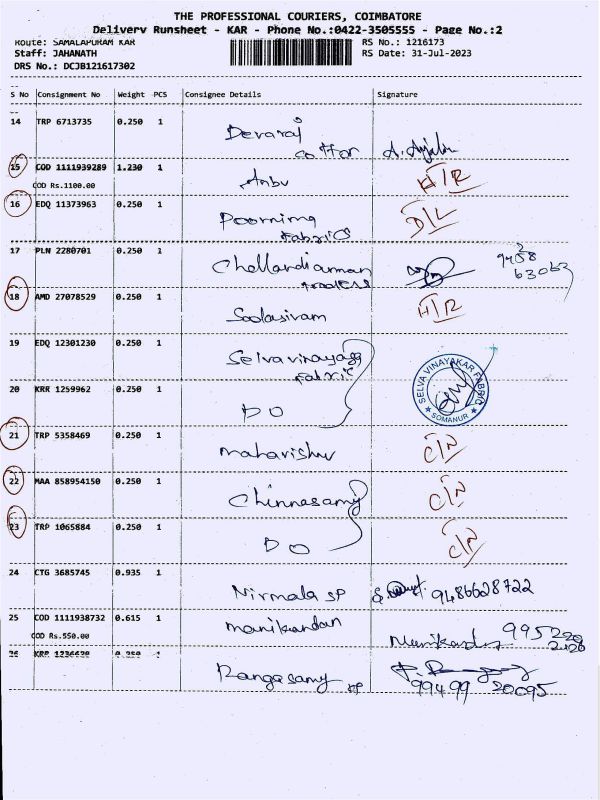 THE PROFESSIONAL COURIERS, COIMBATORE
Delivery Runsheet - KAR - Phone No.:0422-3505555 - Page No.:2
Route: SAMALAPURAM KAR
RS No.: 1216173
Staff: JAHANATH
RS Date: 31-Jul-2023
DRS No.: DCJB121617302
S No Consignment No Weight PCS Consignee Details Signature
14 TRP 6713735 0.250 1 Devaraj
cotton
15 COD 1111939289 1.230 1 Anbu H/R
COD Rs.1100.00
16 EDQ 11373963 0.250 1 Poornima D/L
Fabrics
17 PLN 2280701 0.250 1 Chellandiamman
18 AMD 27078529 0.250 1 Soolasivam H/R
19 EDQ 12301230 0.250 1 Selvavinayaga
Fabric
SELVA VINAYAKAR FABRIC
SOMANUR
20 KRR 1259962 0.250 1 DO
21 TRP 5358469 0.250 1 mahavishnu C/N
22 MAA 858954150 0.250 1 Chinnasamy C/N
23 TRP 1065884 0.250 1 DO C/N
24 CTG 3685745 0.935 1 Nirmala SP 9486628722
25 COD 1111938732 0.615 1 manikandan
COD Rs.550.00
26 KRR 1236628 0.250 1 Rangasamy
99499 20095